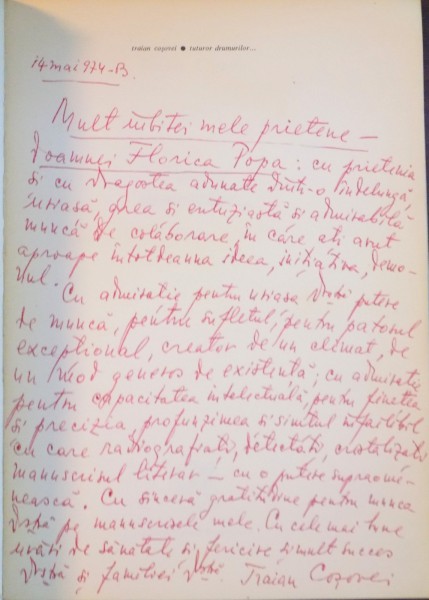 traian coșovei ● tuturor drumurilor...
14 mai 974-B.
Mult iubitei mele prietene —
Doamnei Florica Popa: cu prietenia
și cu dragostea adunate dintr-o îndelungă,
uriașă, grea și entuziastă și admirabilă
muncă de colaborare, în care ați avut
aproape întotdeauna ideea, inițiativa, demo-
nul.
Cu admirație pentru uriașa Dvstră putere
de muncă, pentru sufletul, pentru patosul
excepțional, creator de un climat, de
un mod generos de existență; cu admirație
pentru capacitatea intelectuală, pentru finețea
și precizia, profunzimea și simțul infailibil
cu care radiografiați, detectați, cristalizați
manuscrisul literar — cu o putere supraome-
nească. Cu sinceră gratitudine pentru munca
Dvstră pe manuscrisele mele. Cu cele mai bune
urări de sănătate și fericire, și mult succes
Dvstră și familiei Dvstră. Traian Coșovei